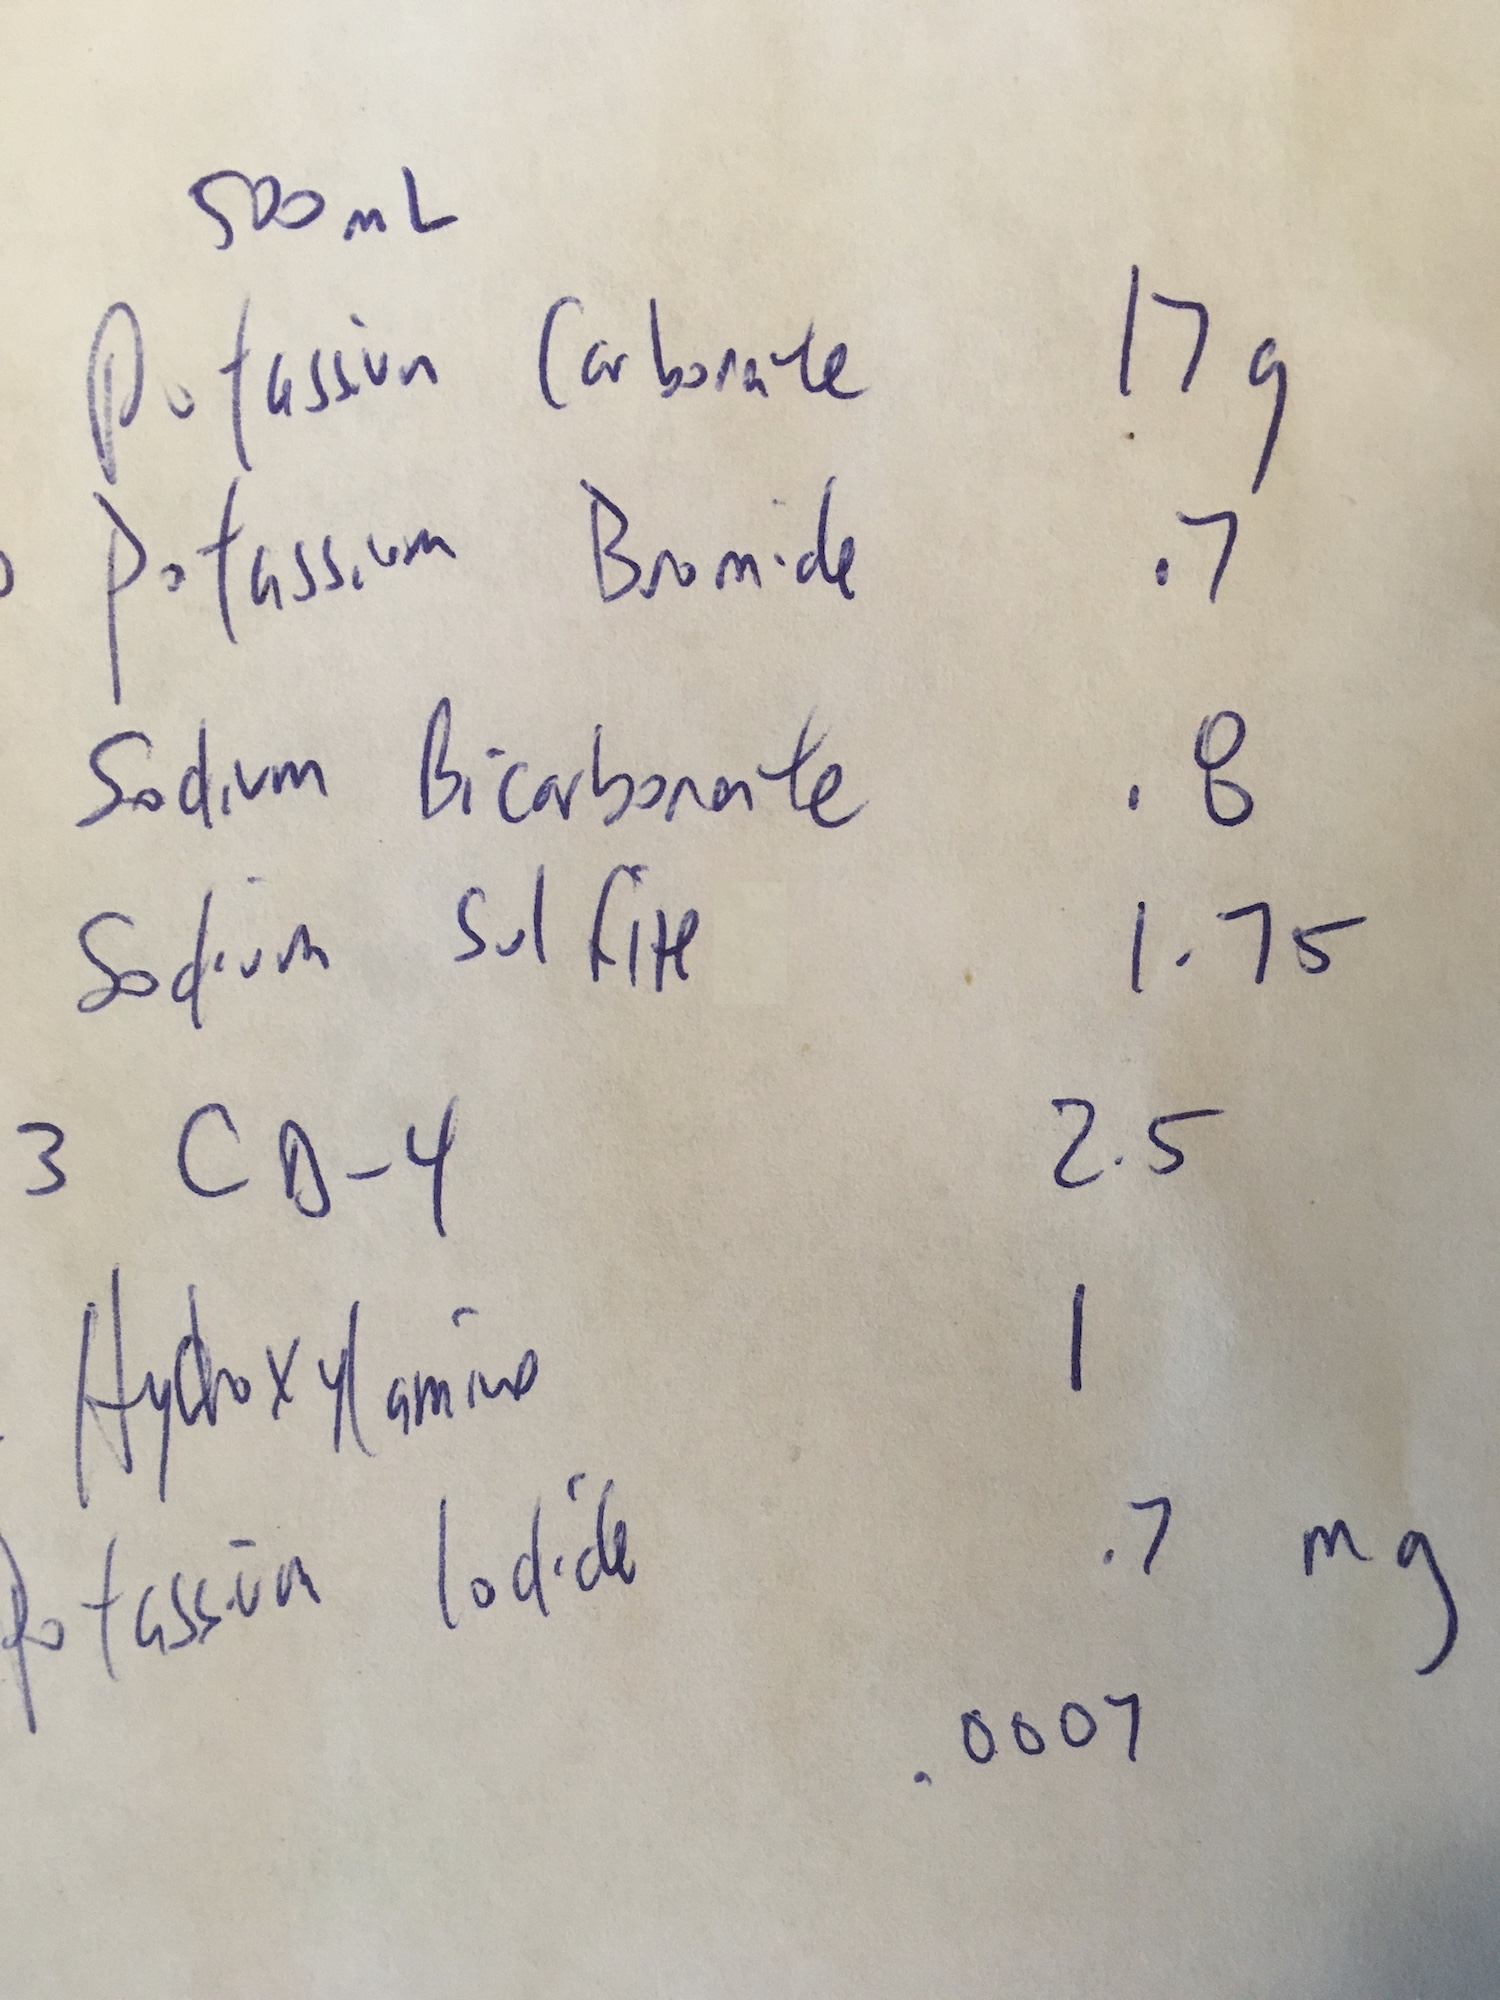 500 mL
Potassium Carbonate 17 g
Potassium Bromide .7
Sodium Bicarbonate .8
Sodium Sulfite 1.75
3 CD-4 2.5
Hydroxylamine 1
Potassium Iodide .7 mg
.0007